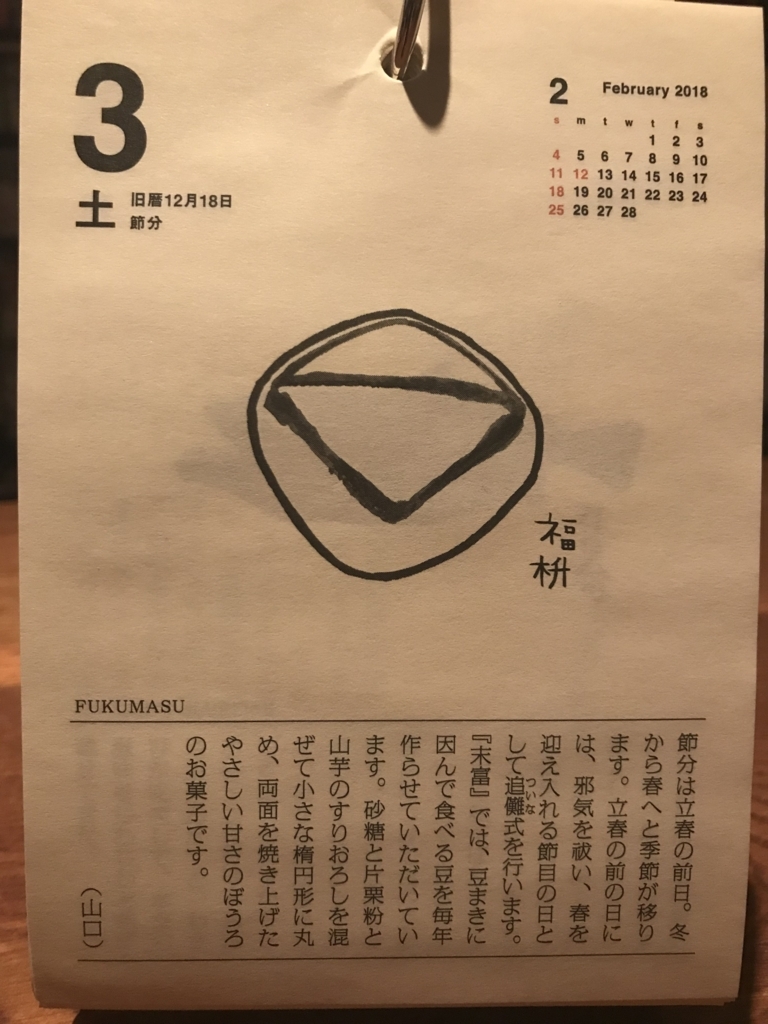 3
土
旧暦12月18日
節分
2 February 2018
s m t w t f s
1 2 3
4 5 6 7 8 9 10
11 12 13 14 15 16 17
18 19 20 21 22 23 24
25 26 27 28
福
枡
FUKUMASU
節分は立春の前日。冬
から春へと季節が移り
ます。立春の前の日に
は、邪気を祓い、春を
迎え入れる節目の日と
して追儺式を行います。
ついな
『末富』では、豆まきに
因んで食べる豆を毎年
作らせていただいてい
ます。砂糖と片栗粉と
山芋のすりおろしを混
ぜて小さな楕円形に丸
め、両面を焼き上げた
やさしい甘さのぼうろ
のお菓子です。
（山口）